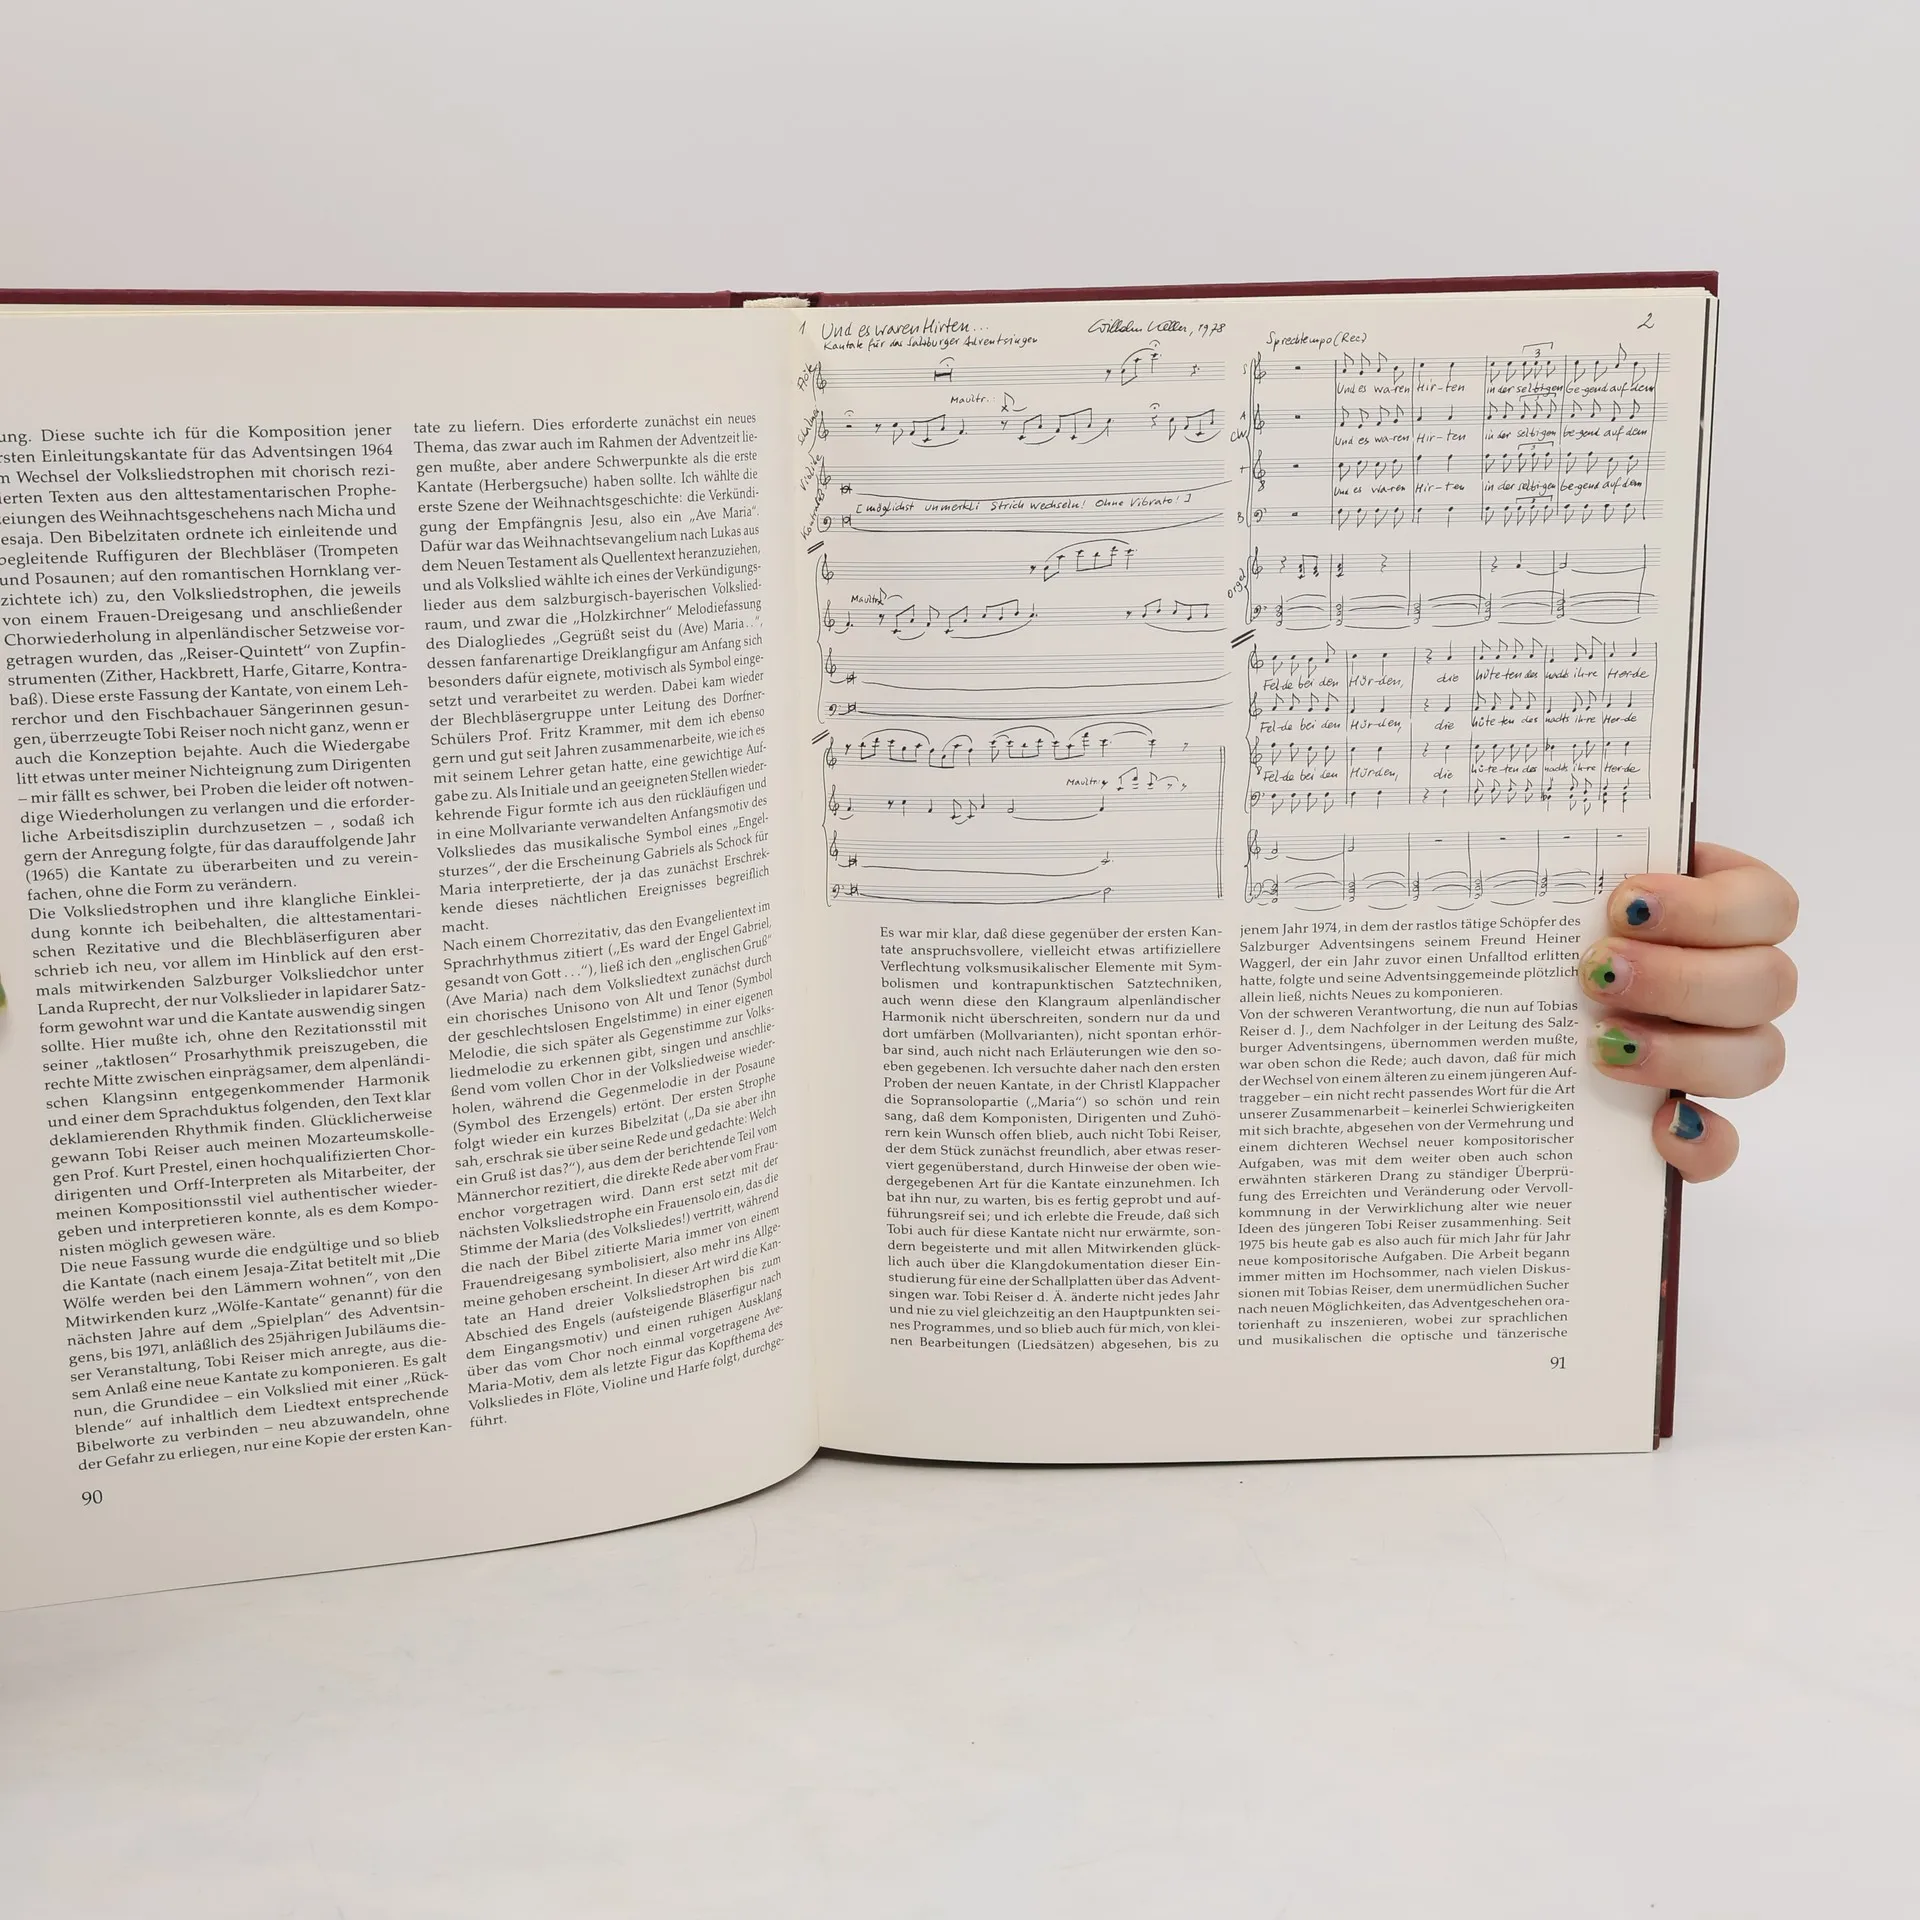 ung. Diese suchte ich für die Komposition jener
rsten Einleitungskantate für das Adventsingen 1964
m Wechsel der Volksliedstrophen mit chorisch rezi-
ierten Texten aus den alttestamentarischen Prophe-
zeiungen des Weihnachtsgeschehens nach Micha und
esaja. Den Bibelzitaten ordnete ich einleitende und
begleitende Ruffiguren der Blechbläser (Trompeten
und Posaunen; auf den romantischen Hornklang ver-
zichtete ich) zu, den Volksliedstrophen, die jeweils
von einem Frauen-Dreigesang und anschließender
Chorwiederholung in alpenländischer Setzweise vor-
getragen wurden, das „Reiser-Quintett“ von Zupfin-
strumenten (Zither, Hackbrett, Harfe, Gitarre, Kontra-
baß). Diese erste Fassung der Kantate, von einem Leh-
rerchor und den Fischbachauer Sängerinnen gesun-
gen, überrzeugte Tobi Reiser noch nicht ganz, wenn er
auch die Konzeption bejahte. Auch die Wiedergabe
litt etwas unter meiner Nichteignung zum Dirigenten
– mir fällt es schwer, bei Proben die leider oft notwen-
dige Wiederholungen zu verlangen und die erforder-
liche Arbeitsdisziplin durchzusetzen – , sodaß ich
gern der Anregung folgte, für das darauffolgende Jahr
(1965) die Kantate zu überarbeiten und zu verein-
fachen, ohne die Form zu verändern.
Die Volksliedstrophen und ihre klangliche Einklei-
dung konnte ich beibehalten, die alttestamentari-
schen Rezitative und die Blechbläserfiguren aber
schrieb ich neu, vor allem im Hinblick auf den erst-
mals mitwirkenden Salzburger Volksliedchor unter
Landa Ruprecht, der nur Volkslieder in lapidarer Satz-
form gewohnt war und die Kantate auswendig singen
sollte. Hier mußte ich, ohne den Rezitationsstil mit
seiner „taktlosen“ Prosarhythmik preiszugeben, die
rechte Mitte zwischen einprägsamer, dem alpenländi-
schen Klangsinn entgegenkommender Harmonik
und einer dem Sprachduktus folgenden, den Text klar
deklamierenden Rhythmik finden. Glücklicherweise
gewann Tobi Reiser auch meinen Mozarteumskolle-
gen Prof. Kurt Prestel, einen hochqualifizierten Chor-
dirigenten und Orff-Interpreten als Mitarbeiter, der
meinen Kompositionsstil viel authentischer wieder-
geben und interpretieren konnte, als es dem Kompo-
nisten möglich gewesen wäre.
Die neue Fassung wurde die endgültige und so blieb
die Kantate (nach einem Jesaja-Zitat betitelt mit „Die
Wölfe werden bei den Lämmern wohnen“, von den
Mitwirkenden kurz „Wölfe-Kantate“ genannt) für die
nächsten Jahre auf dem „Spielplan“ des Adventsin-
gens, bis 1971, anläßlich des 25jährigen Jubiläums die-
ser Veranstaltung, Tobi Reiser mich anregte, aus die-
sem Anlaß eine neue Kantate zu komponieren. Es galt
nun, die Grundidee – ein Volkslied mit einer „Rück-
blende“ auf inhaltlich dem Liedtext entsprechende
Bibelworte zu verbinden – neu abzuwandeln, ohne
der Gefahr zu erliegen, nur eine Kopie der ersten Kan-
90
tate zu liefern. Dies erforderte zunächst ein neues
Thema, das zwar auch im Rahmen der Adventzeit lie-
gen mußte, aber andere Schwerpunkte als die erste
Kantate (Herbergsuche) haben sollte. Ich wählte die
erste Szene der Weihnachtsgeschichte: die Verkündi-
gung der Empfängnis Jesu, also ein „Ave Maria“.
Dafür war das Weihnachtsevangelium nach Lukas aus
dem Neuen Testament als Quellentext heranzuziehen,
und als Volkslied wählte ich eines der Verkündigungs-
lieder aus dem salzburgisch-bayerischen Volkslied-
raum, und zwar die „Holzkirchner“ Melodiefassung
des Dialogliedes „Gegrüßt seist du (Ave) Maria. . “,
dessen fanfarenartige Dreiklangfigur am Anfang sich
besonders dafür eignete, motivisch als Symbol einge-
setzt und verarbeitet zu werden. Dabei kam wieder
der Blechbläsergruppe unter Leitung des Dorfner-
Schülers Prof. Fritz Krammer, mit dem ich ebenso
gern und gut seit Jahren zusammenarbeite, wie ich es
mit seinem Lehrer getan hatte, eine gewichtige Auf-
gabe zu. Als Initiale und an geeigneten Stellen wieder-
kehrende Figur formte ich aus den rückläufigen und
in eine Mollvariante verwandelten Anfangsmotiv des
Volksliedes das musikalische Symbol eines „Engel-
sturzes“, der die Erscheinung Gabriels als Schock für
Maria interpretierte, der ja das zunächst Erschrek-
kende dieses nächtlichen Ereignisses begreiflich
macht.
Nach einem Chorrezitativ, das den Evangelientext im
Sprachrhythmus zitiert („Es ward der Engel Gabriel,
gesandt von Gott . . .“), ließ ich den „englischen Gruß“
(Ave Maria) nach dem Volksliedtext zunächst durch
ein chorisches Unisono von Alt und Tenor (Symbol
der geschlechtslosen Engelstimme) in einer eigenen
Melodie, die sich später als Gegenstimme zur Volks-
liedmelodie zu erkennen gibt, singen und anschlie-
ßend vom vollen Chor in der Volksliedweise wieder-
holen, während die Gegenmelodie in der Posaune
(Symbol des Erzengels) ertönt. Der ersten Strophe
folgt wieder ein kurzes Bibelzitat („Da sie aber ihn
sah, erschrak sie über seine Rede und gedachte: Welch
ein Gruß ist das?“), aus dem der berichtende Teil vom
Männerchor rezitiert, die direkte Rede aber vom Frau-
enchor vorgetragen wird. Dann erst setzt mit der
nächsten Volksliedstrophe ein Frauensolo ein, das die
Stimme der Maria (des Volksliedes!) vertritt, während
die nach der Bibel zitierte Maria immer von einem
Frauendreigesang symbolisiert, also mehr ins Allge-
meine gehoben erscheint. In dieser Art wird die Kan-
tate an Hand dreier Volksliedstrophen bis zum
Abschied des Engels (aufsteigende Bläserfigur nach
dem Eingangsmotiv) und einen ruhigen Ausklang
über das vom Chor noch einmal vorgetragene Ave-
Maria-Motiv, dem als letzte Figur das Kopfthema des
Volksliedes in Flöte, Violine und Harfe folgt, durchge-
führt.
1 Und es waren Hirten... Wilhelm Keller, 1978
Kantate für das Salzburger Adventsingen
Flöte
Maultr.:
Violine
Kontrabaß
[möglichst unmerkl. Strich wechseln! Ohne Vibrato!]
Maultr.
Maultr.
2
Sprechtempo (Rec)
S
Und es wa-ren Hir-ten in der selbigen Ge-gend auf dem
A
Und es wa-ren Hir-ten in der selbigen Ge-gend auf dem
T
Und es wa-ren Hir-ten in der selbigen Ge-gend auf dem
B
Orgel
Fel-de bei den Hür-den, die hüte-ten des nachts ih-re Herde
Fel-de bei den Hür-den, die hüte ten des nachts ihre Her-de
Fel-de bei den Hürden, die hü-te-ten des nachts ih-re Her-de
Es war mir klar, daß diese gegenüber der ersten Kan-
tate anspruchsvollere, vielleicht etwas artifiziellere
Verflechtung volksmusikalischer Elemente mit Sym-
bolismen und kontrapunktischen Satztechniken,
auch wenn diese den Klangraum alpenländischer
Harmonik nicht überschreiten, sondern nur da und
dort umfärben (Mollvarianten), nicht spontan erhör-
bar sind, auch nicht nach Erläuterungen wie den so-
eben gegebenen. Ich versuchte daher nach den ersten
Proben der neuen Kantate, in der Christl Klappacher
die Sopransolopartie („Maria“) so schön und rein
sang, daß dem Komponisten, Dirigenten und Zuhö-
rern kein Wunsch offen blieb, auch nicht Tobi Reiser,
der dem Stück zunächst freundlich, aber etwas reser-
viert gegenüberstand, durch Hinweise der oben wie-
dergegebenen Art für die Kantate einzunehmen. Ich
bat ihn nur, zu warten, bis es fertig geprobt und auf-
führungsreif sei; und ich erlebte die Freude, daß sich
Tobi auch für diese Kantate nicht nur erwärmte, son-
dern begeisterte und mit allen Mitwirkenden glück-
lich auch über die Klangdokumentation dieser Ein-
studierung für eine der Schallplatten über das Advent-
singen war. Tobi Reiser d. Ä. änderte nicht jedes Jahr
und nie zu viel gleichzeitig an den Hauptpunkten sei-
nes Programmes, und so blieb auch für mich, von klei-
nen Bearbeitungen (Liedsätzen) abgesehen, bis zu
jenem Jahr 1974, in dem der rastlos tätige Schöpfer des
Salzburger Adventsingens seinem Freund Heiner
Waggerl, der ein Jahr zuvor einen Unfalltod erlitten
hatte, folgte und seine Adventsinggemeinde plötzlich
allein ließ, nichts Neues zu komponieren.
Von der schweren Verantwortung, die nun auf Tobias
Reiser d. J., dem Nachfolger in der Leitung des Salz-
burger Adventsingens, übernommen werden mußte,
war oben schon die Rede; auch davon, daß für mich
der Wechsel von einem älteren zu einem jüngeren Auf-
traggeber – ein nicht recht passendes Wort für die Art
unserer Zusammenarbeit – keinerlei Schwierigkeiten
mit sich brachte, abgesehen von der Vermehrung und
einem dichteren Wechsel neuer kompositorischer
Aufgaben, was mit dem weiter oben auch schon
erwähnten stärkeren Drang zu ständiger Überprü-
fung des Erreichten und Veränderung oder Vervoll-
kommnung in der Verwirklichung alter wie neuer
Ideen des jüngeren Tobi Reiser zusammenhing. Seit
1975 bis heute gab es also auch für mich Jahr für Jahr
neue kompositorische Aufgaben. Die Arbeit begann
immer mitten im Hochsommer, nach vielen Diskus-
sionen mit Tobias Reiser, dem unermüdlichen Sucher
nach neuen Möglichkeiten, das Adventgeschehen ora-
torienhaft zu inszenieren, wobei zur sprachlichen
und musikalischen die optische und tänzerische
91